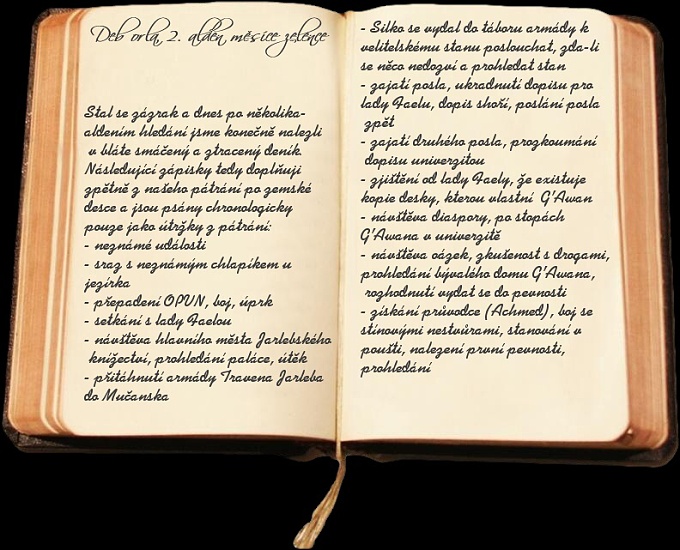 Deb orla, 2. alden měsíce zelence
Stal se zázrak a dnes po několika-
aldením hledání jsme konečně nalezli
v blátě smáčený a ztracený deník.
Následující zápisky tedy doplňuji
zpětně z našeho pátrání po zemské
desce a jsou psány chronologicky
pouze jako útržky z pátrání:
- neznámé události
- sraz s neznámým chlapíkem u
jezírka
- přepadení OPUN, boj, úprk
- setkání s lady Faelou
- návštěva hlavního města Jarlebského
knížectví, prohledání paláce, útěk
- přitáhnutí armády Travena Jarleba
do Mučanska
- Silko se vydal do táboru armády k
velitelskému stanu poslouchat, zda-li
se něco nedozví a prohledat stan
- zajatí posla, ukradnutí dopisu pro
lady Faelu, dopis shoří, poslání posla
zpět
- zajatí druhého posla, prozkoumání
dopisu univerzitou
- zjištění od lady Faely, že existuje
kopie desky, kterou vlastní G'Awan
- návštěva diaspory, po stopách
G'Awana v univerzitě
- návštěva oázek, zkušenost s drogami,
prohledání bývalého domu G'Awana,
rozhodnutí vydat se do pevnosti
- získání průvodce (Achmed), boj se
stínovými nestvůrami, stanování v
poušti, nalezení první pevnosti,
prohledání